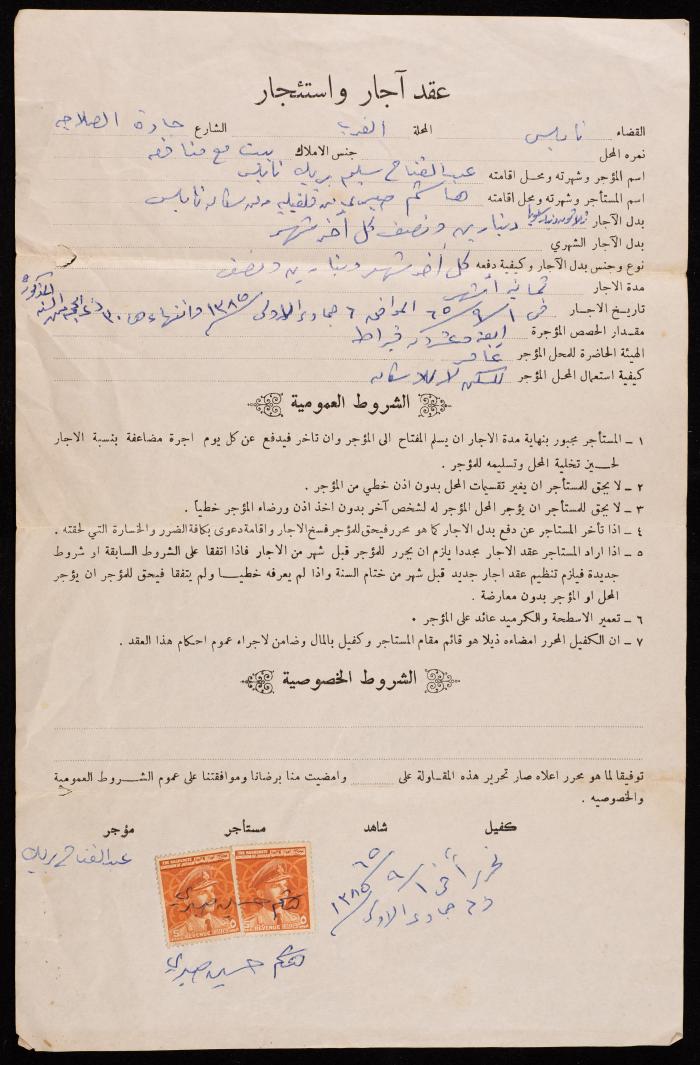 عقد آجار واستئجار
القضاء نابلس المحلة الغرب الشارع جادة الصلاحيه
نمره المحل جنس الاملاك بيت مع منافعه
اسم المؤجر وشهرته ومحل اقامته عبد الفتاح سليم بريك نابلس
اسم المستأجر وشهرته ومحل اقامته هاشم صبري من قلقيليه ومن سكان نابلس
بدل الآجار دينارين ونصف كل آخر شهر
بدل الآجار الشهري
نوع وجنس بدل الآجار وكيفية دفعه كل آخر شهر دينارين ونصف
مدة الاجار ثمانية أشهر
تاريخ الاجار في ١/٩/٦٥ الموافق ٦ جمادى الاولى/١٣٨٥ وانتهاءها ٣٠ ذي الحجة من السنة المذكورة
مقدار الحصص المؤجرة أربعة وعشرون قيراط
الهيئة الحاضرة للمحل المؤجر عامر
كيفية استعمال المحل المؤجر للسكن لا للاسكان
الشروط العمومية
١ ــ المستأجر مجبور بنهاية مدة الاجار ان يسلم المفتاح الى المؤجر وان تاخر فيدفع عن كل يوم اجرة مضاعفة بنسبة الاجار
لحــين تخلية المحل وتسليمه للمؤجر .
٢ ــ لا يحق للمستأجر ان يغير تقسيمات المحل بدون اذن خطي من المؤجر .
٣ ــ لا يحق للمستأجر ان يؤجر المحل المؤجر له لشخص آخر بدون اخذ اذن ورضاء المؤجر خطياً .
٤ ــ اذا تأخر المستاجر عن دفع بدل الاجار كما هو محرر فيحق للمؤجر فسخ الاجار واقامة دعوى بكافة الضرر والخسارة التي لحقته .
٥ ــ اذا اراد المستاجر عقد الاجار مجددا يلزم ان يحرر للمؤجر قبل شهر من الآجار فاذا اتفقا على الشروط السابقة او شروط
جديدة فيلزم تنظيم عقد اجار جديد قبل شهر من ختام السنة واذا لم يعرفه خطيــا ولم يتفقا فيحق للمؤجر ان يؤجر
المحل او المؤجر بدون معارضة .
٦ ــ تعمير الاسطحة والكرميد عائد على المؤجر .
٧ ــ ان الكفيل المحرر امضاءه ذيلا هو قائم مقام المستاجر وكفيل بالمال وضامن لاجراء عموم احكام هذا العقد .
الشروط الخصوصية
توفيقا لما هو محرر اعلاه صار تحرير هذه المقـاولة على وامضيت منا برضانا وموافقتنا على عموم الشــروط العمومية
والخصوصيه .
كفيل شاهد مستاجر مؤجر
عبد الفتاح بريك
تحريرا في ١/٩/٦٥
و٦ جمادى الاولى/١٣٨٥
THE HASHEMITE
KINGDOM OF JORDAN
REVENUE
هاشم حسين صبري
هاشم حسين صبري